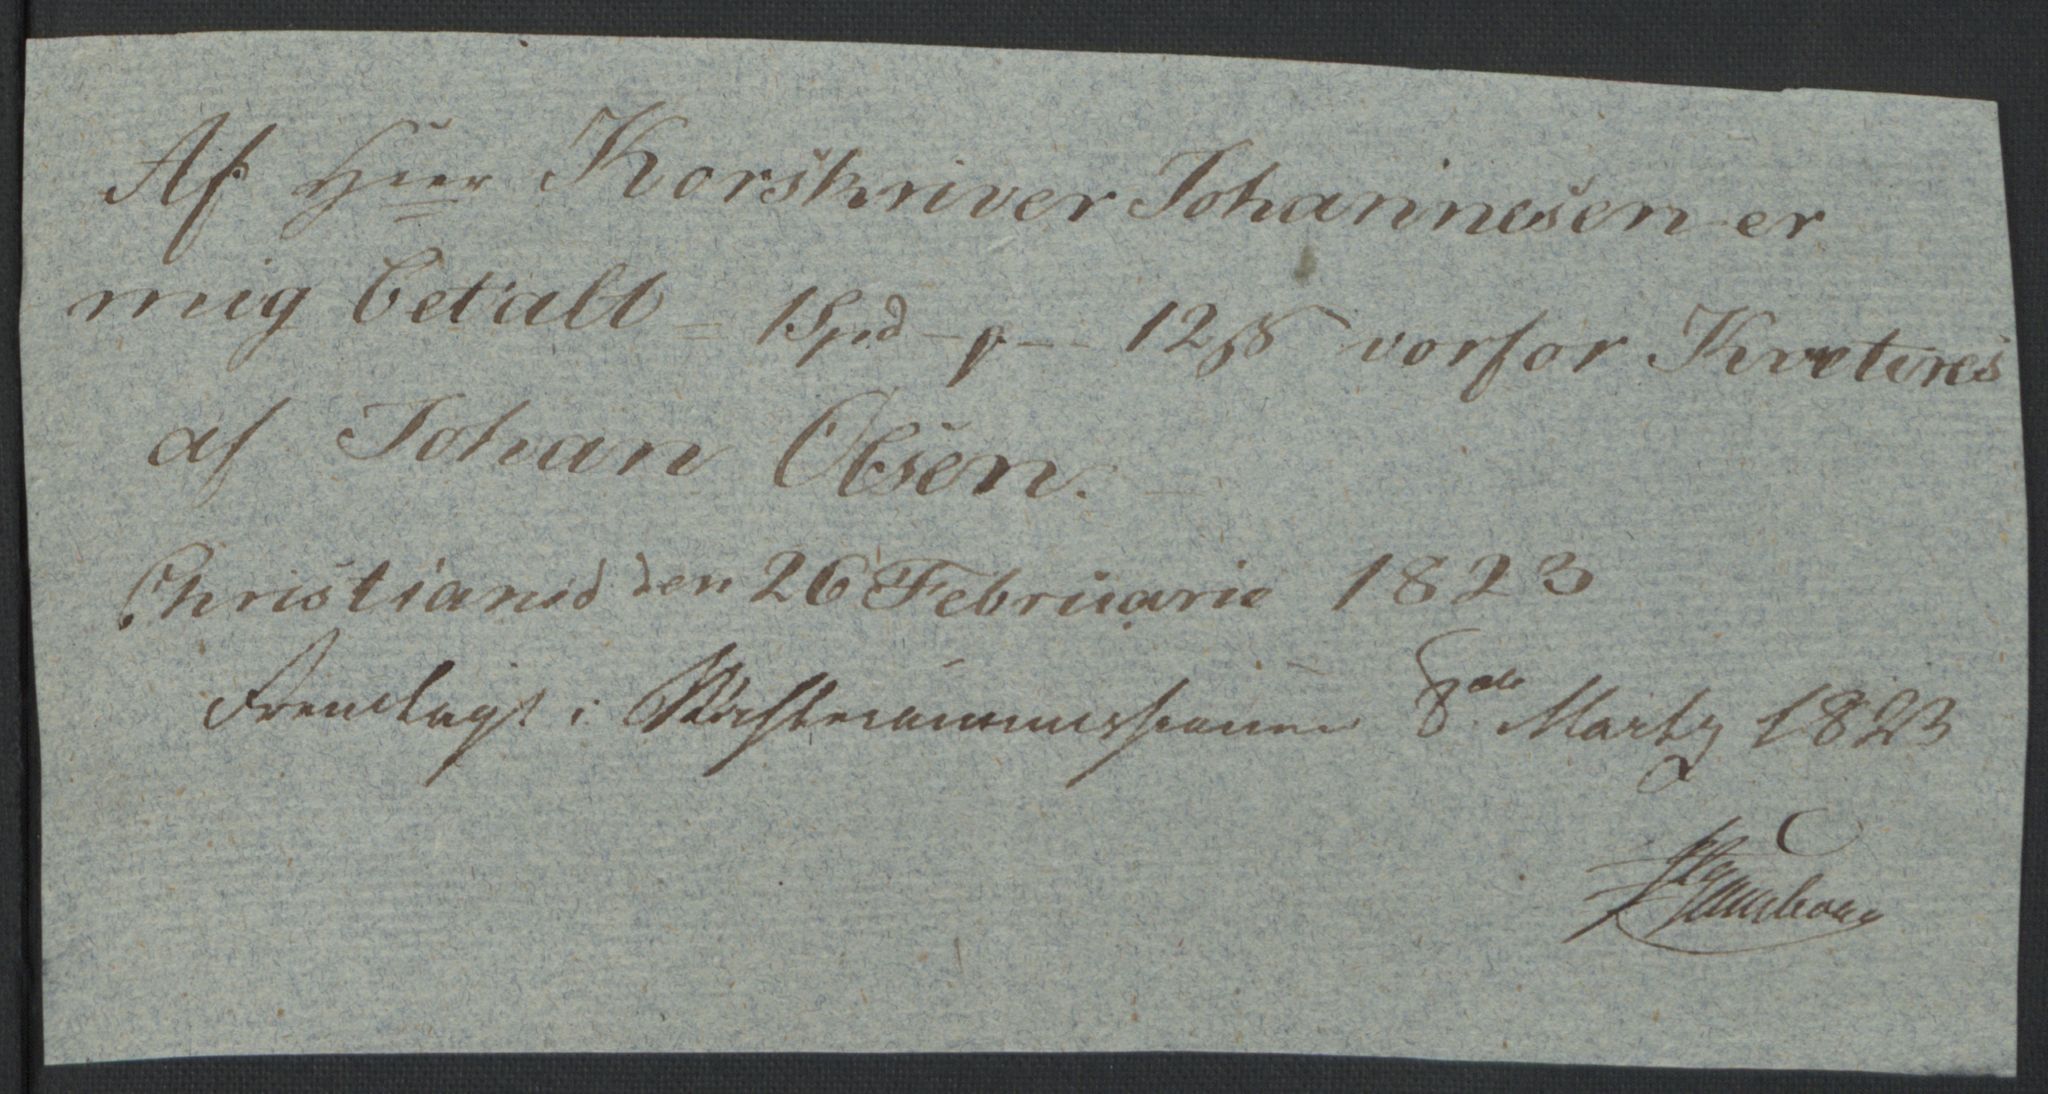 Af Herr Korskriver Johannesen er
mig betalt = 1 Spd – " – 12 ß vorfor Kviteres
af Johan Olsen.
Christianid den 26 Februarie 1823
Fremlagt i 8de Marty 1823